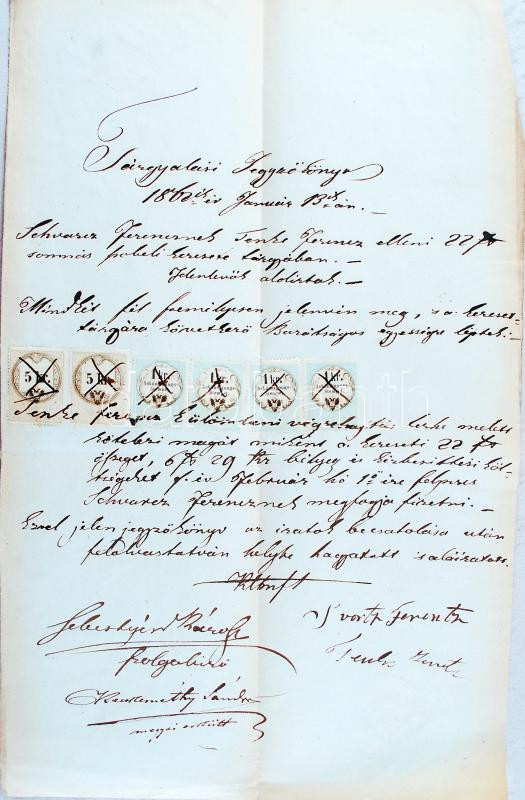 Tárgyalási Jegyzőkönyv
ik év Január 13 án. —
Schvarcz Ferencznek Tenke Ferencz elleni 22 ft
sommás pőbeli keresete tárgyában. —
Jelenlevők alólirtak. —
Mindkét fél személyesen jelenvén meg, s a kereset
tárgyára következő Barátságos egyességre léptek: —
5 kr. 5 kr. 1 kr. 1 kr. 1 kr. 1 kr.
Tenke Ferencz különbeni végrehajtás terhe mellett
kötelezi magát miként a kereseti 22 ft
összeget, 6 ft 29 kr bélyeg és kézbesittési köl-
tségeket f. év Február hó 1ső ére felperes
Schvarcz Ferencznek megfogja fizetni. —
Ezzel jelen jegyzőkönyv az iratok becsatolása után
felolvastatván helybe hagyatott s aláiratott.
Kltmft
Sebestyén Károly
szolgabiró
Svortz Ferentz
Kecskeméthy Sándor
megyei esküdt